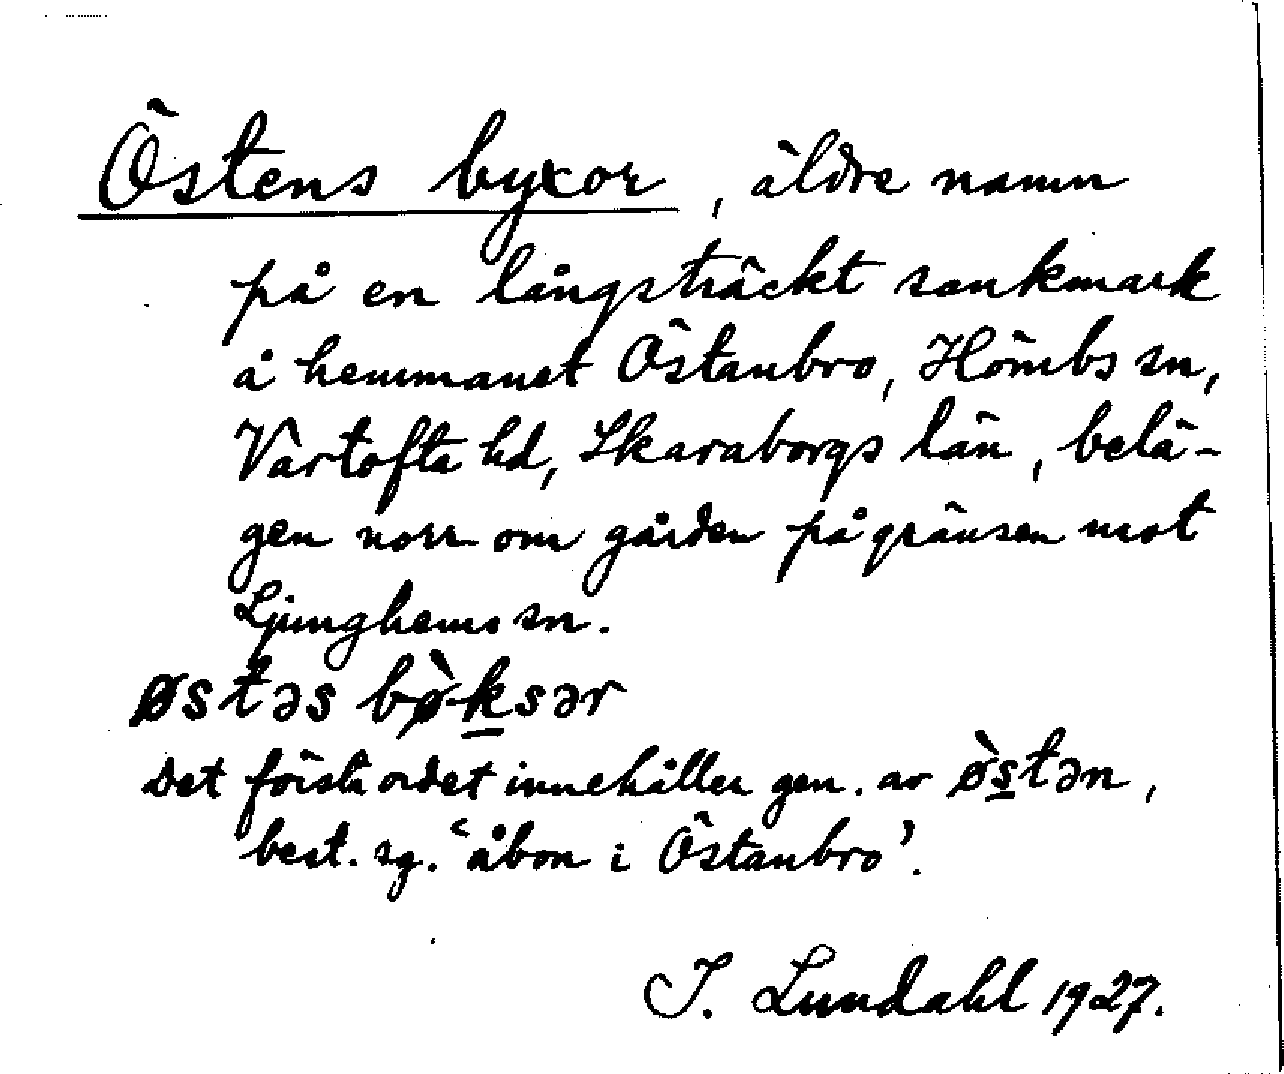 Östens byxor, äldre namn
på en långsträckt sankmark
å hemmanet Östanbro, Hömbs sn,
Vartofta hd, Skaraborgs län, belä-
gen norr om gården på gränsen mot
Ljunghems sn.
østəs bø̀ksər
Det första ordet innehåller gen. av ø̀stən,
best. sg. ‘åbon i Östanbro’.
I. Lundahl 1927.